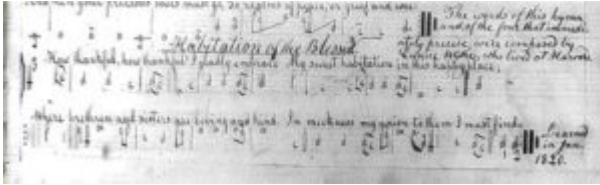 And now your precious souls must go, to regions of
The words of this hymn,
and of the four that immedi-
ately precede, were composed by
who lived at Harvard
Habitation of the Blessed
How thankful, how thankful I gladly embrace My sweet habitation in this holy place;
Where brethren and sisters are loving and kind. In meekness my union to them I must find.
Learned
in Jan.
1820.